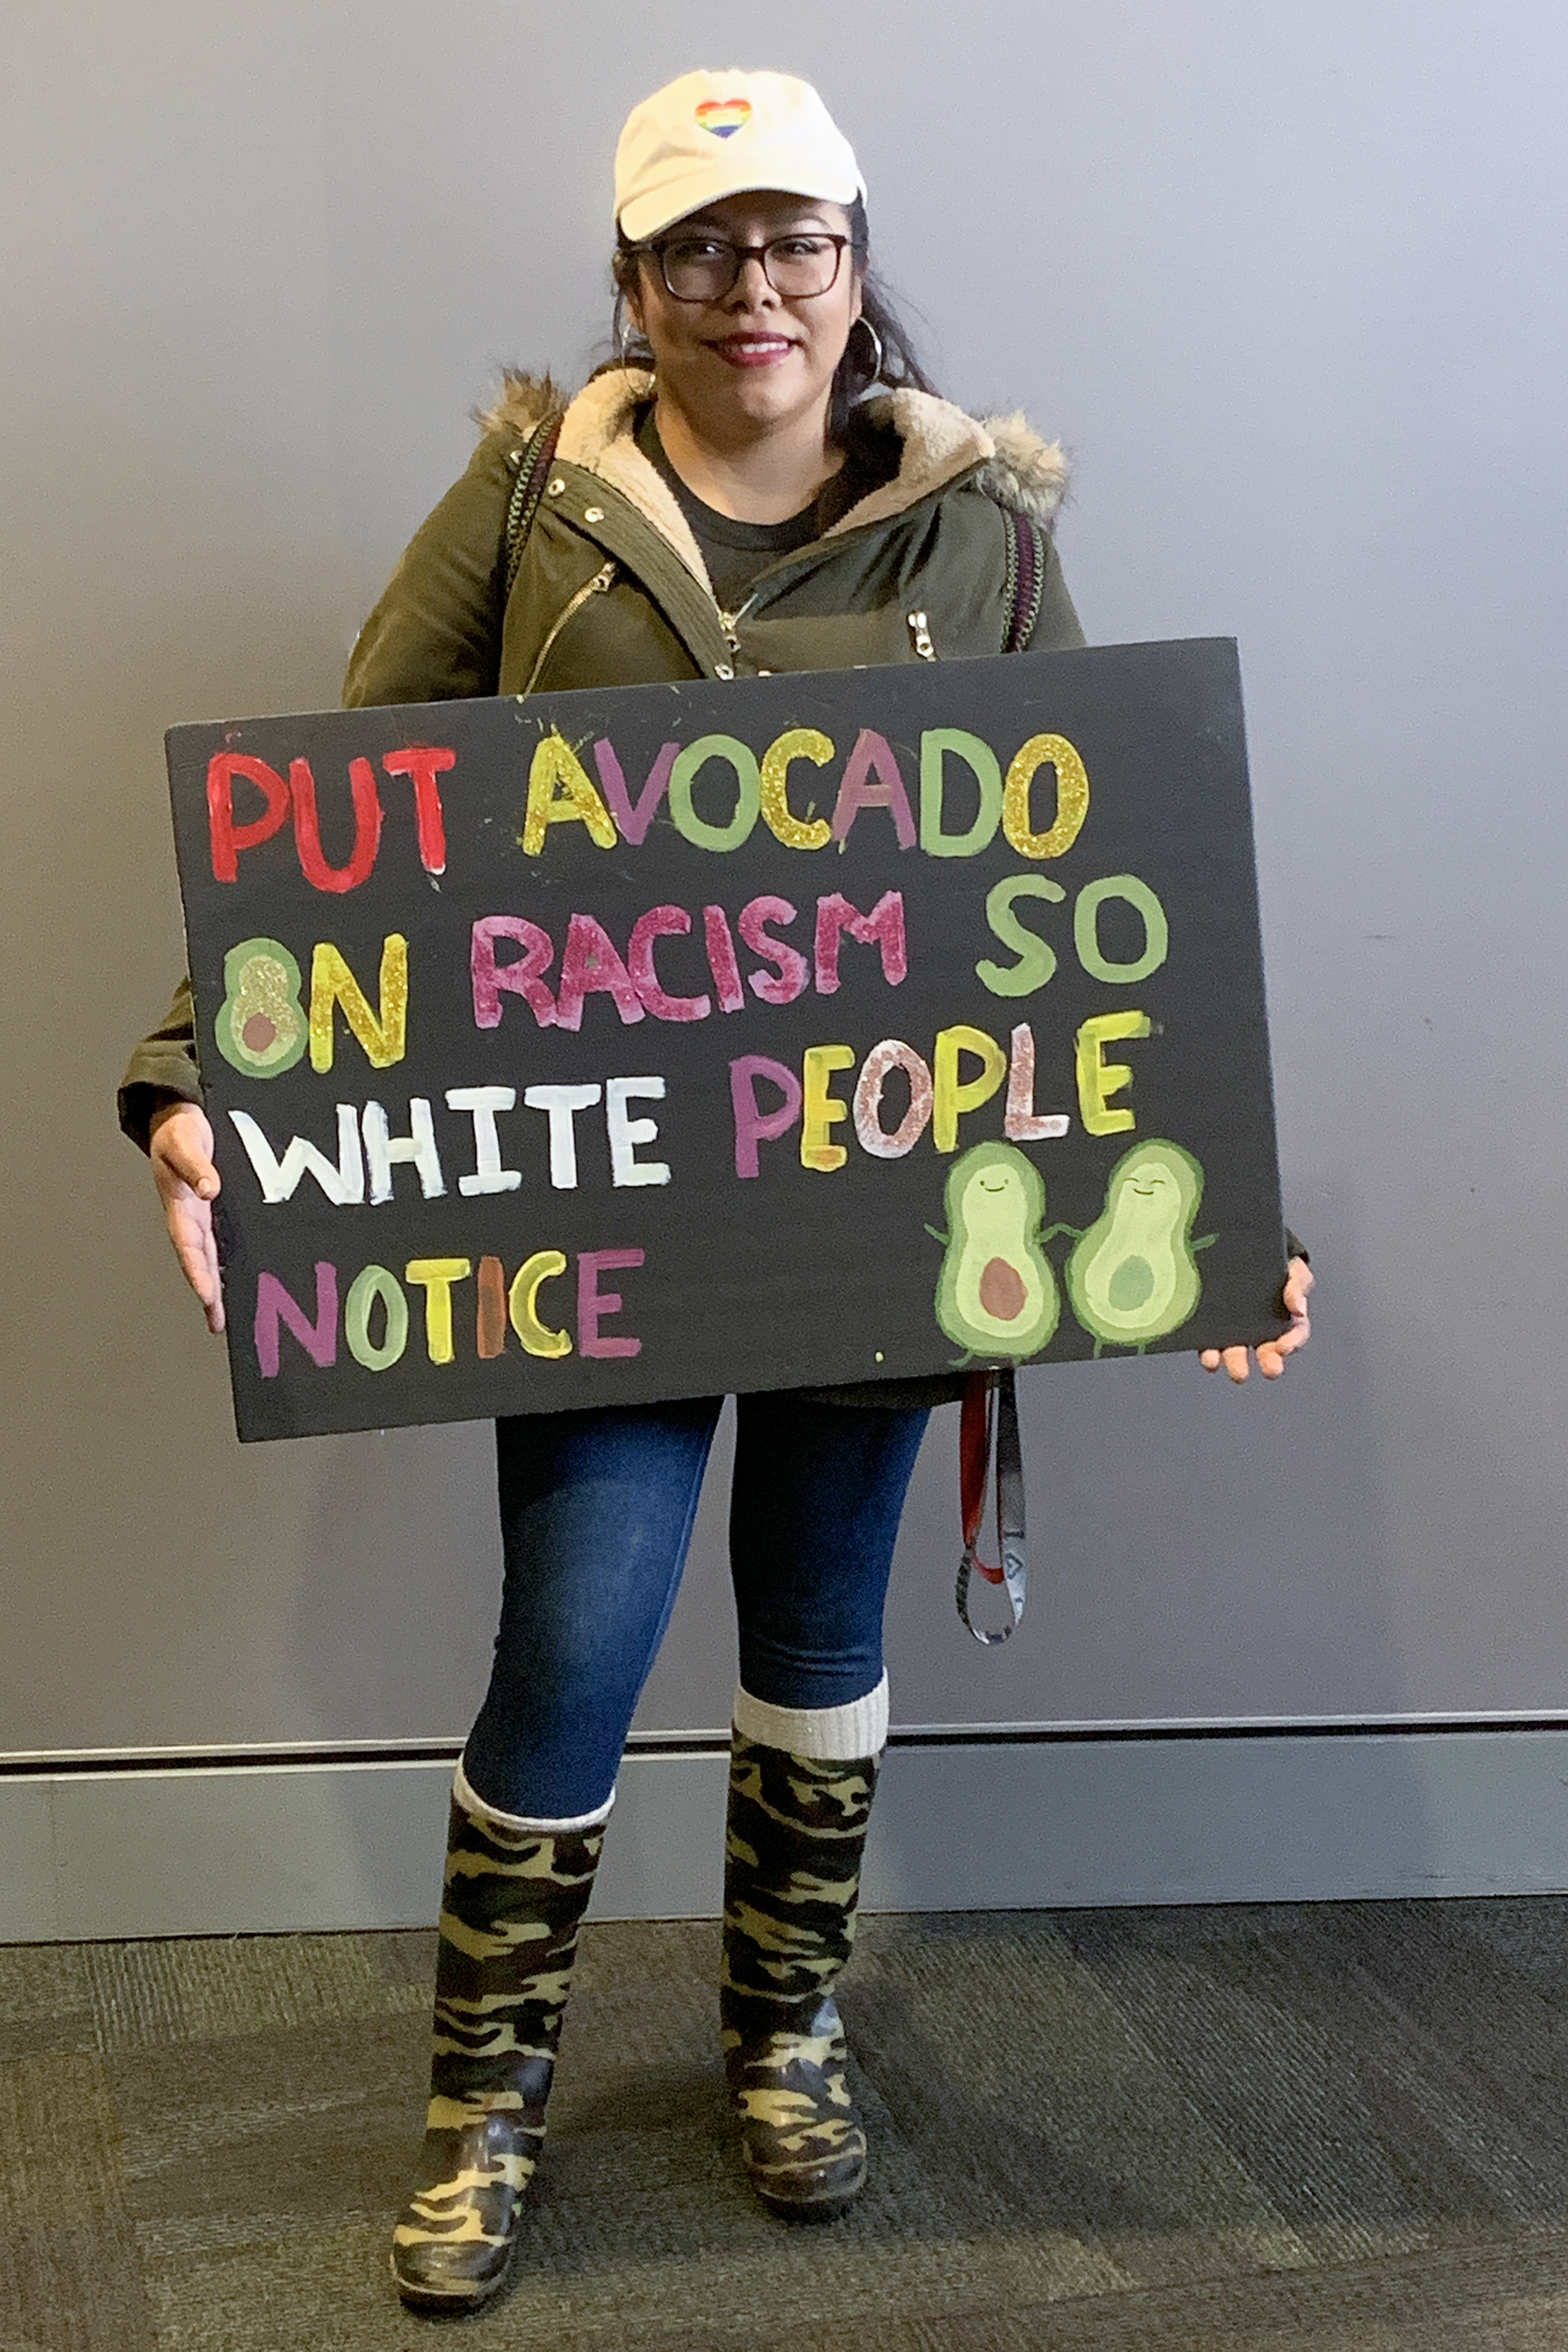 PUT AVOCADO
ON RACISM SO
WHITE PEOPLE
NOTICE